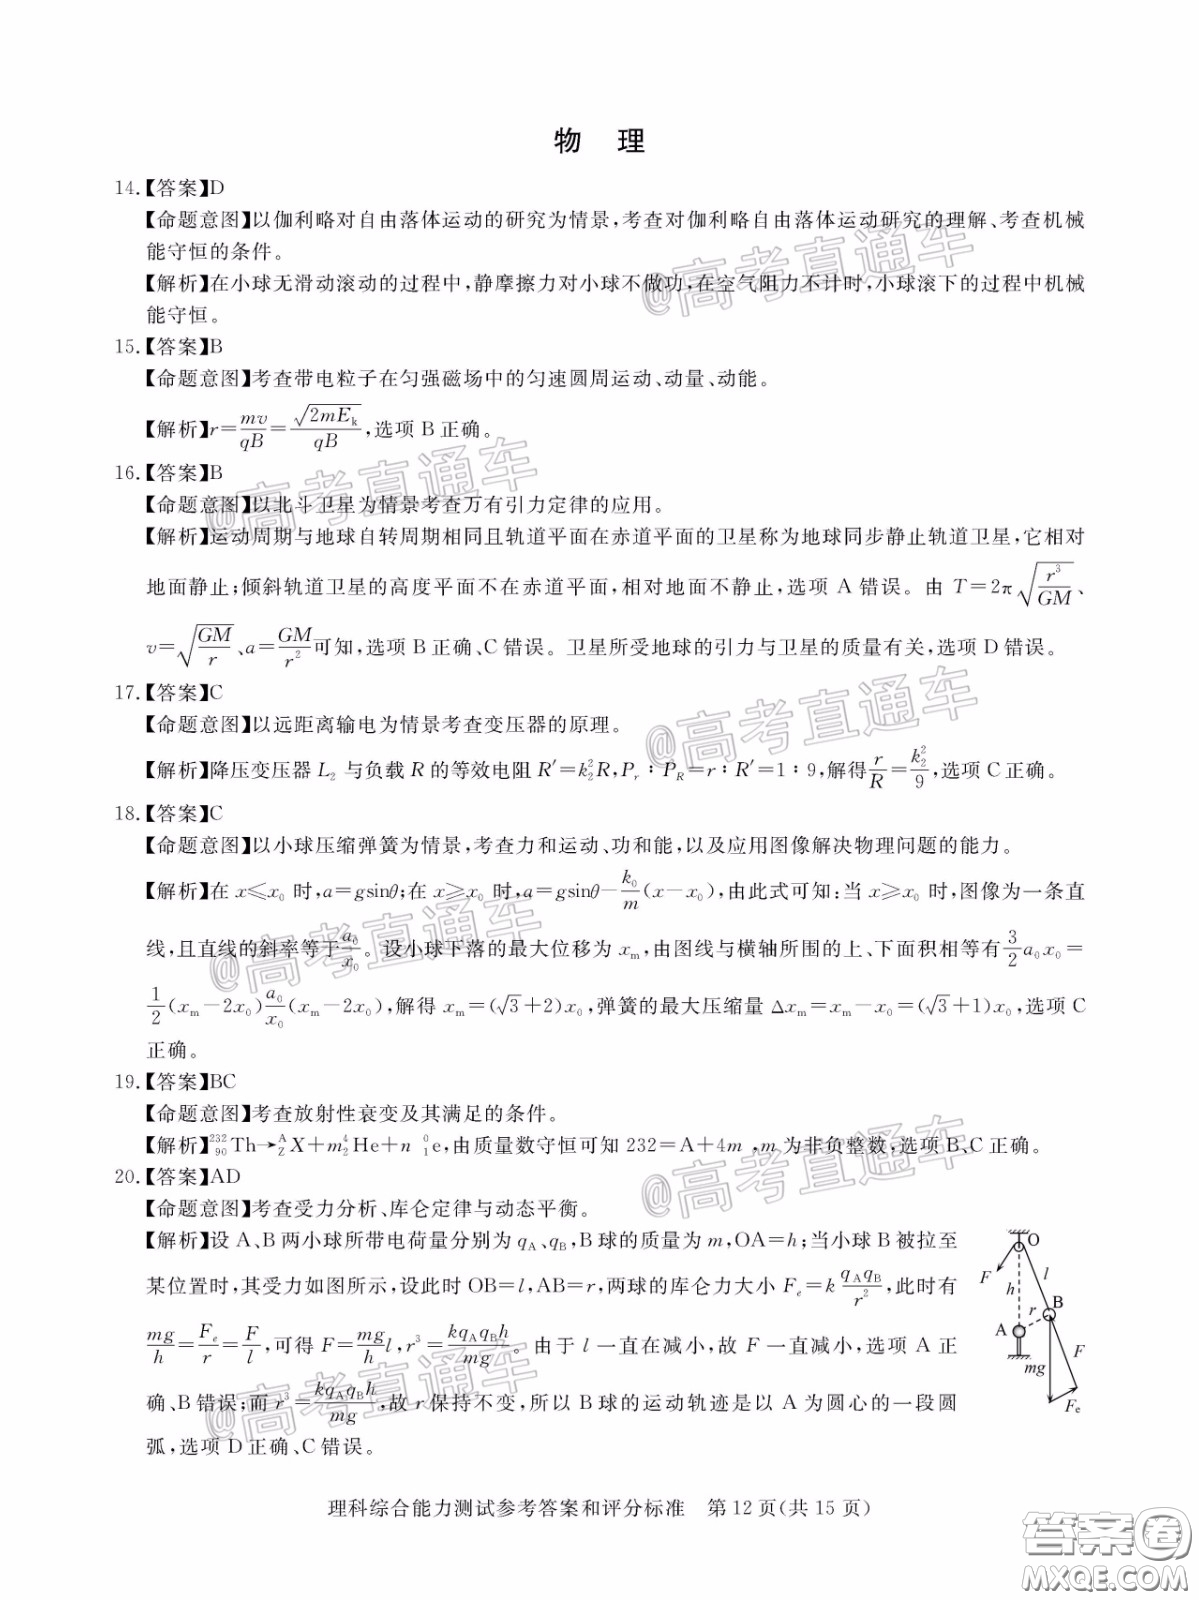 物 理
14.【答案】D
【命题意图】以伽利略对自由落体运动的研究为情景,考查对伽利略自由落体运动研究的理解、考查机械
能守恒的条件。
【解析】在小球无滑动滚动的过程中,静摩擦力对小球不做功,在空气阻力不计时,小球滚下的过程中机械
能守恒。
15.【答案】B
【命题意图】考查带电粒子在匀强磁场中的匀速圆周运动、动量、动能。
【解析】r=mv/qB=√(2mE_k)/qB,选项 B 正确。
16.【答案】B
【命题意图】以北斗卫星为情景考查万有引力定律的应用。
【解析】运动周期与地球自转周期相同且轨道平面在赤道平面的卫星称为地球同步静止轨道卫星,它相对
地面静止;倾斜轨道卫星的高度平面不在赤道平面,相对地面不静止,选项 A 错误。由 T=2π√(r³/GM)、
v=√(GM/r)、a=GM/r²可知,选项 B 正确、C 错误。卫星所受地球的引力与卫星的质量有关,选项 D 错误。
17.【答案】C
【命题意图】以远距离输电为情景考查变压器的原理。
【解析】降压变压器 L₂ 与负载 R 的等效电阻 R′=k₂²R,P_r∶P_R=r∶R′=1∶9,解得r/R=k₂²/9,选项 C 正确。
18.【答案】C
【命题意图】以小球压缩弹簧为情景,考查力和运动、功和能,以及应用图像解决物理问题的能力。
【解析】在 x≤x₀ 时,a=gsinθ;在 x≥x₀ 时,a=gsinθ-k₀/m(x-x₀),由此式可知:当 x≥x₀ 时,图像为一条直
线,且直线的斜率等于a₀/x₀。设小球下落的最大位移为 x_m,由图线与横轴所围的上、下面积相等有3/2a₀x₀=
1/2(x_m-2x₀)a₀/x₀(x_m-2x₀),解得 x_m=(√3+2)x₀,弹簧的最大压缩量 Δx_m=x_m-x₀=(√3+1)x₀,选项 C
正确。
19.【答案】BC
【命题意图】考查放射性衰变及其满足的条件。
【解析】²³²₉₀Th→^A_ZX+m⁴₂He+n ⁰₁e,由质量数守恒可知 232=A+4m ,m 为非负整数,选项 B、C 正确。
20.【答案】AD
【命题意图】考查受力分析、库仑定律与动态平衡。
【解析】设 A、B 两小球所带电荷量分别为 q_A、q_B,B 球的质量为 m,OA=h;当小球 B 被拉至
某位置时,其受力如图所示,设此时 OB=l,AB=r,两球的库仑力大小 F_e=k q_Aq_B/r²,此时有
mg/h=F_e/r=F/l,可得 F=mg/h l,r³=kq_Aq_Bh/mg。由于 l 一直在减小,故 F 一直减小,选项 A 正
确、B 错误;而 r³=kq_Aq_Bh/mg,故 r 保持不变,所以 B 球的运动轨迹是以 A 为圆心的一段圆
弧,选项 D 正确、C 错误。
O
F
h
l
r
B
A
mg
F
F_e
理科综合能力测试参考答案和评分标准 第 12 页(共 15 页)
@高考直通车
@高考直通车
@高考直通车
@高考直通车
@高考直通车
@高考直通车
答案卷
MXQE.COM